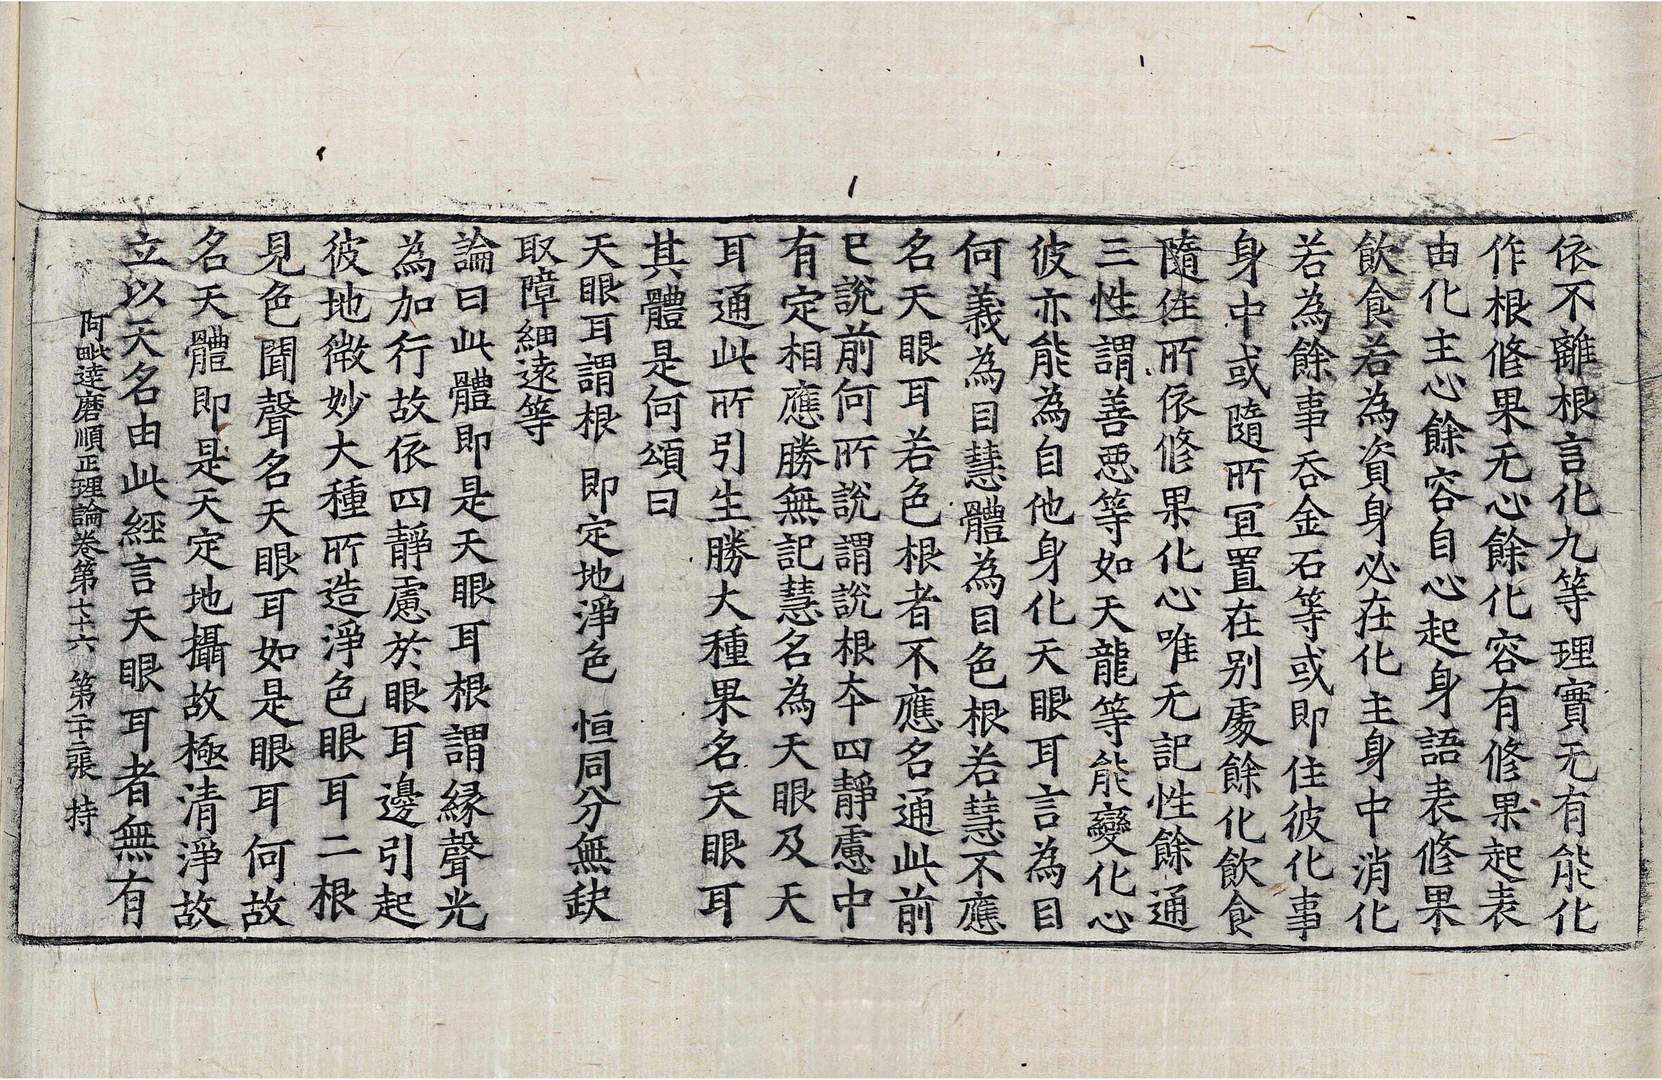 依不離根言化九等理實无有能化
作根修果无心餘化容有修果起表
由化主心餘容自心起身語表修果
飲食若為資身必在化主身中消化
若為餘事吞金石等或即住彼化事
身中或隨所冝置在别處餘化飲食
隨住所依修果化心唯无記性餘通
三性謂善惡等如天龍等能變化心
彼亦能為自他身化天眼耳言為目
何義為目慧體為目色根若慧不應
名天眼耳若色根者不應名通此前
已說前何所說謂說根夲四靜慮中
有定相應勝無記慧名為天眼及天
耳通此所引生勝大種果名天眼耳
其體是何頌曰
天眼耳謂根　即定地淨色　恒同分無缺
取障細遠等
論曰此體即是天眼耳根謂緣聲光
為加行故依四靜慮於眼耳邊引起
彼地微妙大種所造淨色眼耳二根
見色聞聲名天眼耳如是眼耳何故
名天體即是天定地攝故極清淨故
立以天名由此經言天眼耳者無有
阿毗達磨順正理論卷第七十六　第二十二張　持